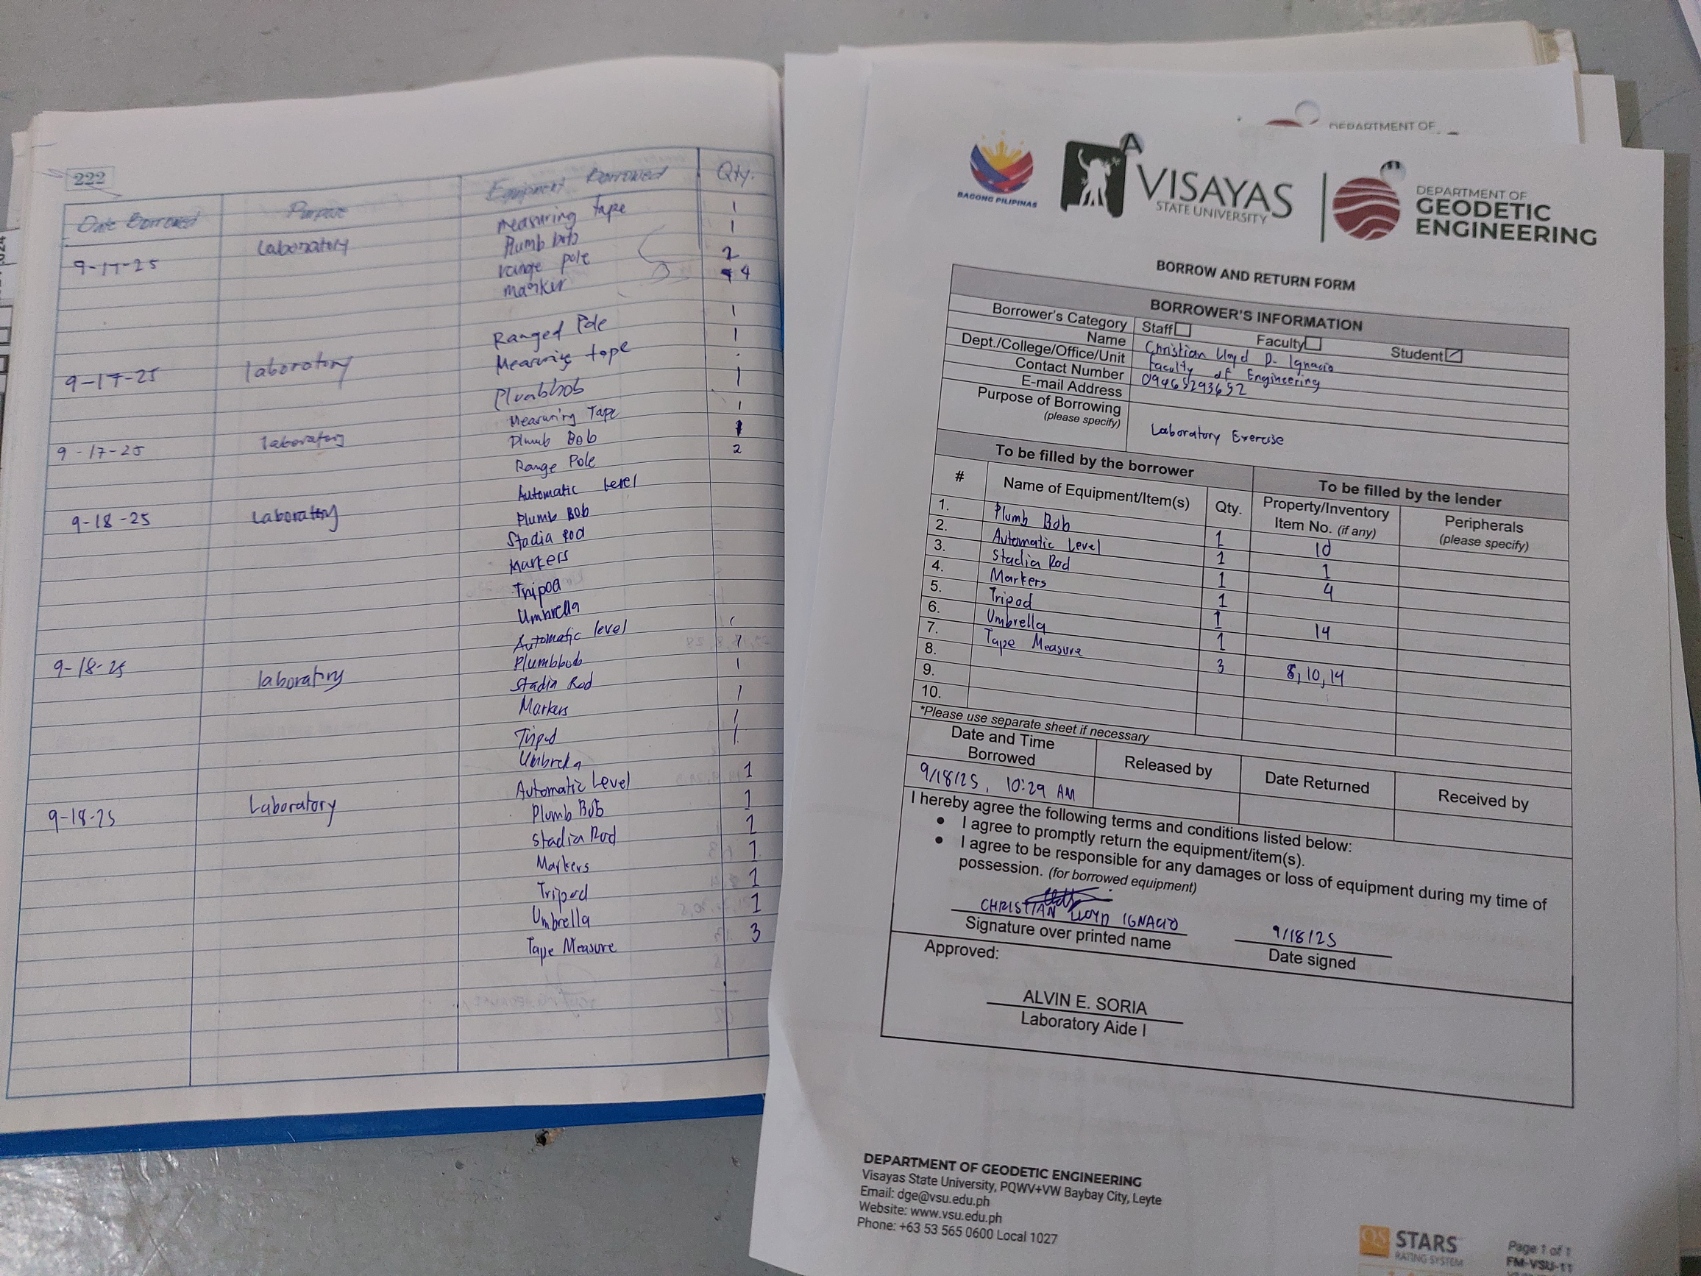 222
Date Borrowed Purpose Equipment Borrowed Qty.
9-17-25 Laboratory measuring tape 1
Plumb bob 1
range pole 2
marker 4
Ranged Pole 1
9-17-25 laboratory Measuring tape 1
Plumbbob 1
Measuring Tape 1
9-17-25 laboratory Plumb Bob 1
Range Pole 2
Automatic Level
9-18-25 Laboratory Plumb Bob
Stadia Rod
Markers
Tripod
Umbrella
Automatic level 1
9-18-25 laboratory Plumbbob 1
Stadia Rod 1
Markers 1
Tripod 1
Umbrella 1
Automatic Level 1
9-18-25 Laboratory Plumb Bob 1
Stadia Rod 1
Markers 1
Tripod 1
Umbrella 1
Tape Measure 3
DEPARTMENT OF
BAGONG PILIPINAS
VISAYAS
STATE UNIVERSITY
DEPARTMENT OF
GEODETIC
ENGINEERING
BORROW AND RETURN FORM
BORROWER'S INFORMATION
Borrower's Category Staff Faculty Student
Name Christian Lloyd D. Ignacio
Dept./College/Office/Unit Faculty of Engineering
Contact Number 09465293652
E-mail Address
Purpose of Borrowing
(please specify) Laboratory Exercise
To be filled by the borrower To be filled by the lender
# Name of Equipment/Item(s) Qty. Property/Inventory Item No. (if any) Peripherals (please specify)
1. Plumb Bob 1 10
2. Automatic Level 1 1
3. Stadia Rod 1 4
4. Markers 1
5. Tripod 1 14
6. Umbrella 1
7. Tape Measure 3 8, 10, 14
8.
9.
10.
*Please use separate sheet if necessary
Date and Time Borrowed Released by Date Returned Received by
9/18/25, 10:29 AM
I hereby agree the following terms and conditions listed below:
• I agree to promptly return the equipment/item(s).
• I agree to be responsible for any damages or loss of equipment during my time of
possession. (for borrowed equipment)
CHRISTIAN LLOYD IGNACIO 9/18/25
Signature over printed name Date signed
Approved:
ALVIN E. SORIA
Laboratory Aide I
DEPARTMENT OF GEODETIC ENGINEERING
Visayas State University, PQWV+VW Baybay City, Leyte
Email: dge@vsu.edu.ph
Website: www.vsu.edu.ph
Phone: +63 53 565 0600 Local 1027
QS STARS
RATING SYSTEM
Page 1 of 1
FM-VSU-11